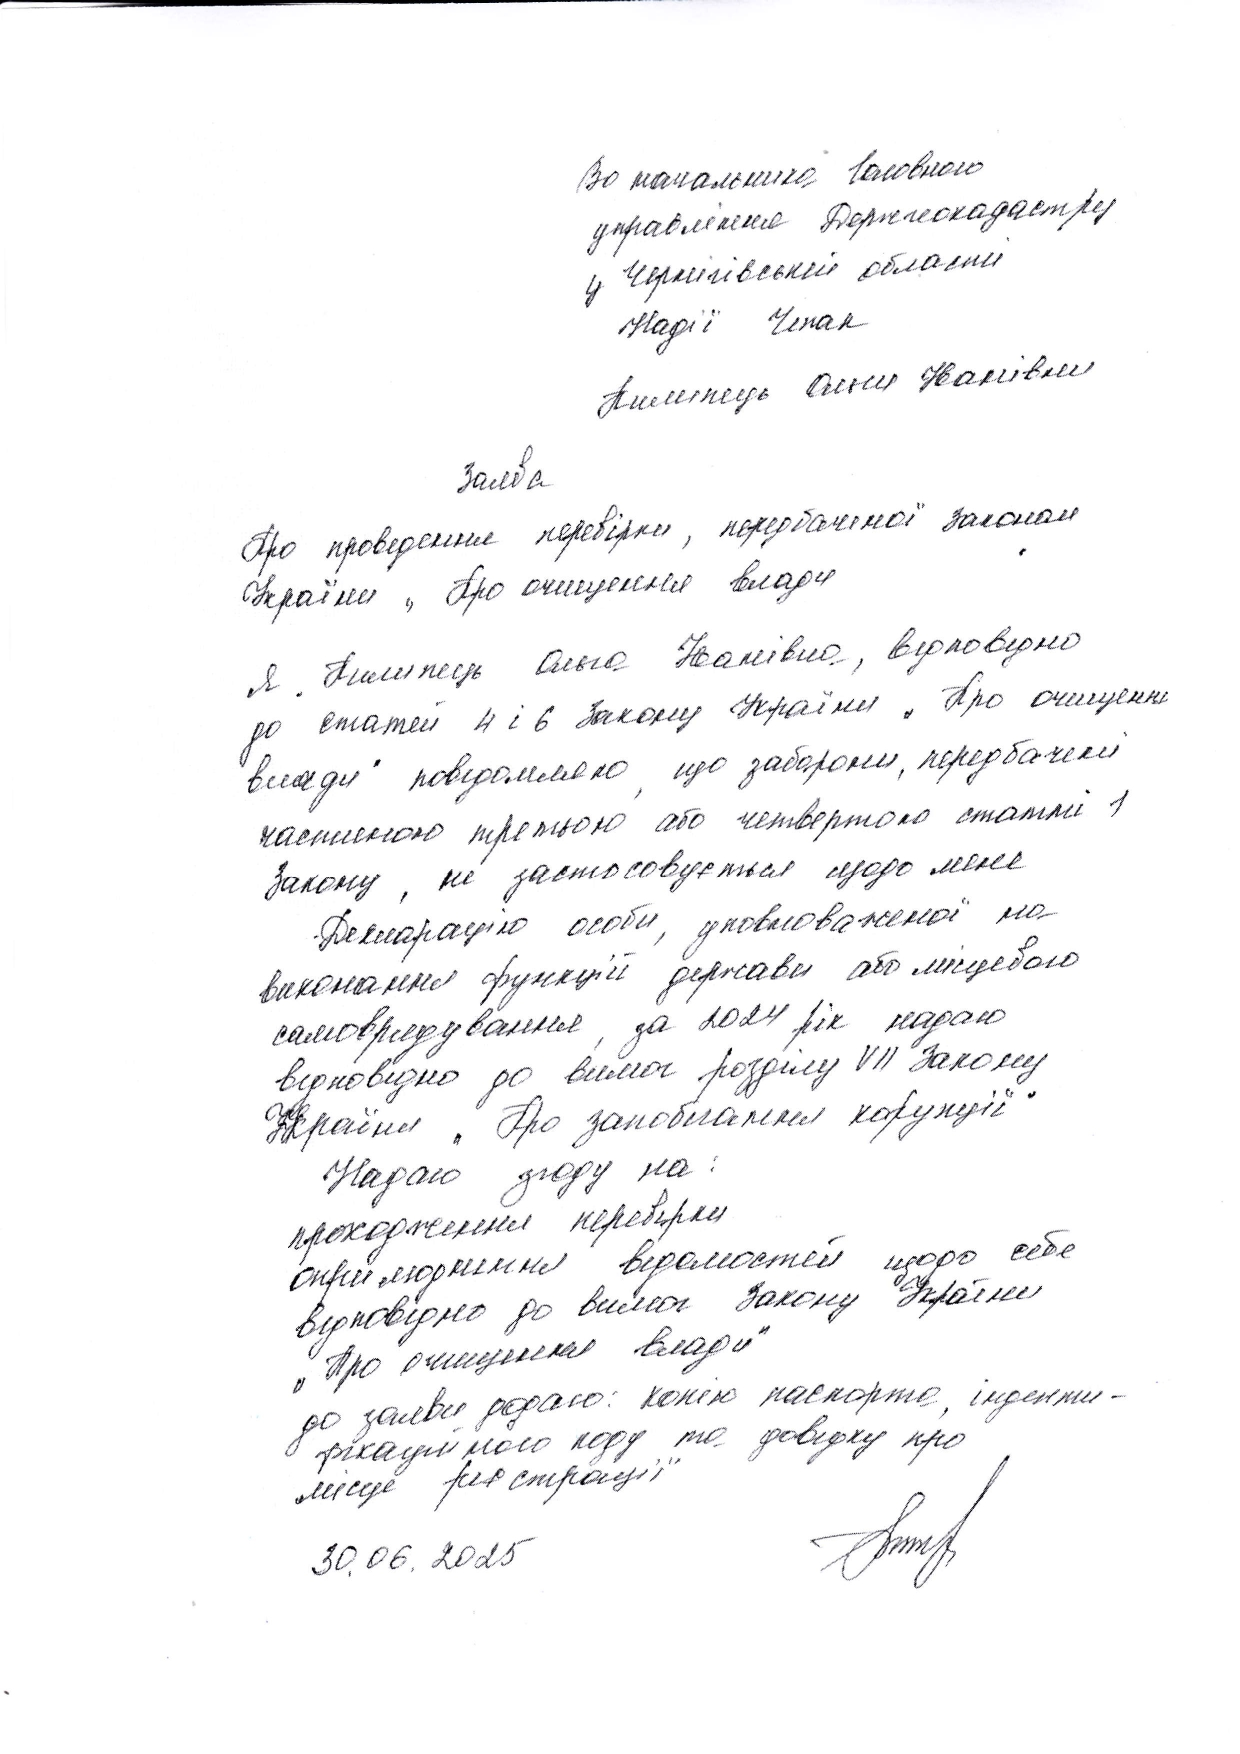 Во начальника Головного
управління Держгеокадастру
у Чернігівській області
Надії Чепак
Пилипець Ольги Іванівни
Заява
Про проведення перевірки, передбаченої Законом
України „Про очищення влади
Я, Пилипець Ольга Іванівна, відповідно
до статей 4 і 6 Закону України „Про очищення
влади" повідомляю, що заборони, передбачені
частиною третьою або четвертою статті 1
Закону, не застосовується щодо мене
Декларацію особи, уповноваженої на
виконання функцій держави або місцевого
самоврядування, за 2024 рік надаю
відповідно до вимог розділу VII Закону
України „Про запобігання корупції"
Надаю згоду на:
проходження перевірки
оприлюднення відомостей щодо себе
відповідно до вимог Закону України
„Про очищення влади"
до заяви додаю: копію паспорта, іденти-
фікаційного коду та довідку про
місце реєстрації
30.06.2025